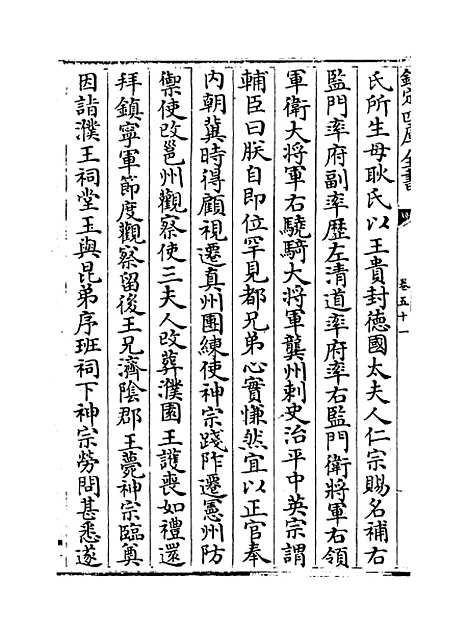 欽定四庫全書
卷五十一
氏所生母耿氏以王貴封德國太夫人仁宗賜名補右
監門率府副率歴左清道率府率右監門衛將軍右領
軍衛大將軍右驍騎大將軍龔州刺史治平中英宗謂
輔臣曰朕自即位罕見都兄弟心實慊然宜以正官奉
内朝冀時得顧視遷真州團練使神宗踐阼遷憲州防
禦使改邕州觀察使三夫人改葬濮園王護喪如禮還
拜鎮寧軍節度觀察留後王兄濟陰郡王薨神宗臨奠
因詣濮王祠堂王與昆弟序班祠下神宗勞問甚悉遂